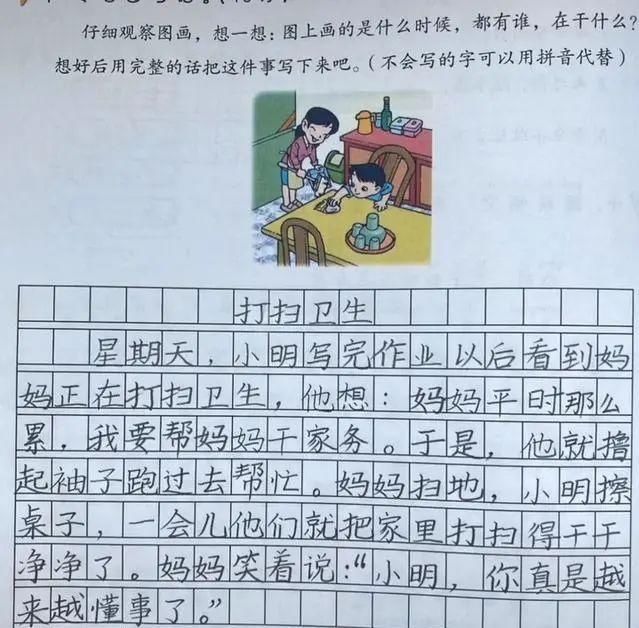 仔细观察图画，想一想：图上画的是什么时候，都有谁，在干什么？
想好后用完整的话把这件事写下来吧。（不会写的字可以用拼音代替）
打扫卫生
星期天，小明写完作业以后看到妈
妈正在打扫卫生，他想：妈妈平时那么
累，我要帮妈妈干家务。于是，他就撸
起袖子跑过去帮忙。妈妈扫地，小明擦
桌子，一会儿他们就把家里打扫得干干
净净了。妈妈笑着说：“小明，你真是越
来越懂事了。”